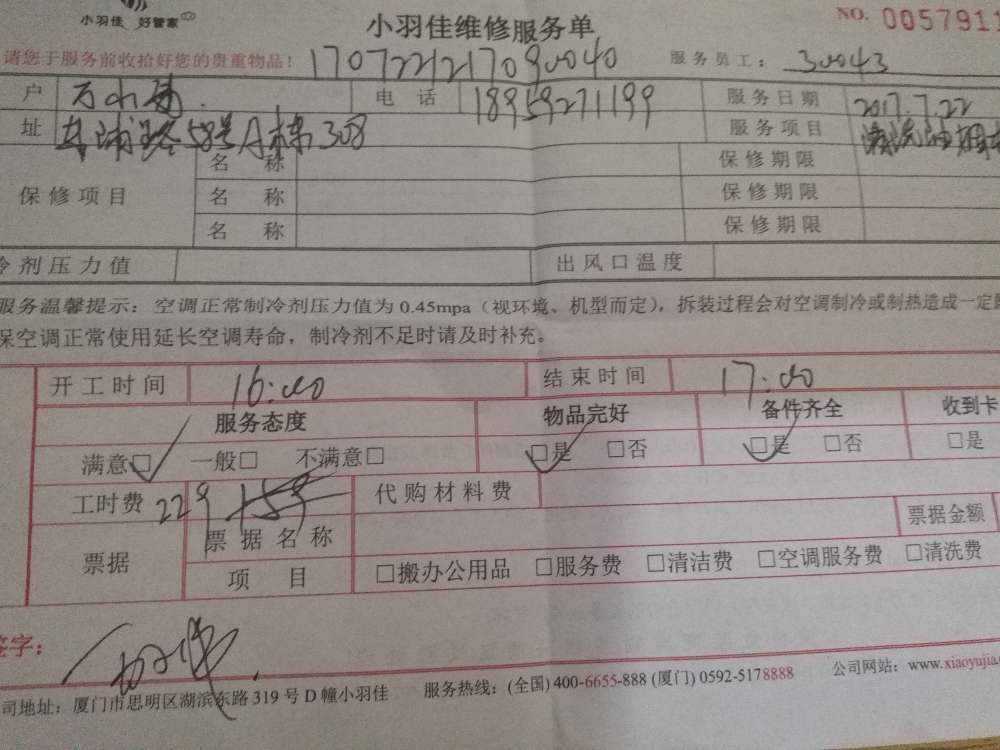 小羽佳 好管家
小羽佳维修服务单
NO. 0057911
请您于服务前收拾好您的贵重物品!
服务员工: 30043
户
电 话 18959271199 服务日期 2017.7.22
址 58号A栋308 服务项目 清洗油烟
保修项目 名 称 保修期限
名 称 保修期限
名 称 保修期限
冷剂压力值 出风口温度
服务温馨提示:空调正常制冷剂压力值为0.45mpa(视环境、机型而定),拆装过程会对空调制冷或制热造成一定
保空调正常使用延长空调寿命,制冷剂不足时请及时补充。
开工时间 16:00 结束时间 17:00
服务态度 物品完好 备件齐全 收到卡
满意□ 一般□ 不满意□ □是 □否 □是 □否 □是
工时费 229 代购材料费
票据 票据名称 票据金额
项 目 □搬办公用品 □服务费 □清洁费 □空调服务费 □清洗费
签字:
司地址:厦门市思明区湖滨东路319号D幢小羽佳 服务热线:(全国)400-6655-888 (厦门)0592-5178888 公司网站:www.xiaoyujia.